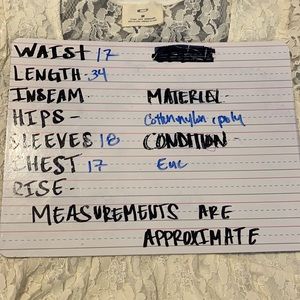 WAIST 17
LENGTH-34
INSEAM MATERIAL-
HIPS- Cotton nylon & poly
SLEEVES 18 CONDITION-
CHEST 17 Euc
RISE-
MEASUREMENTS ARE
APPROXIMATE